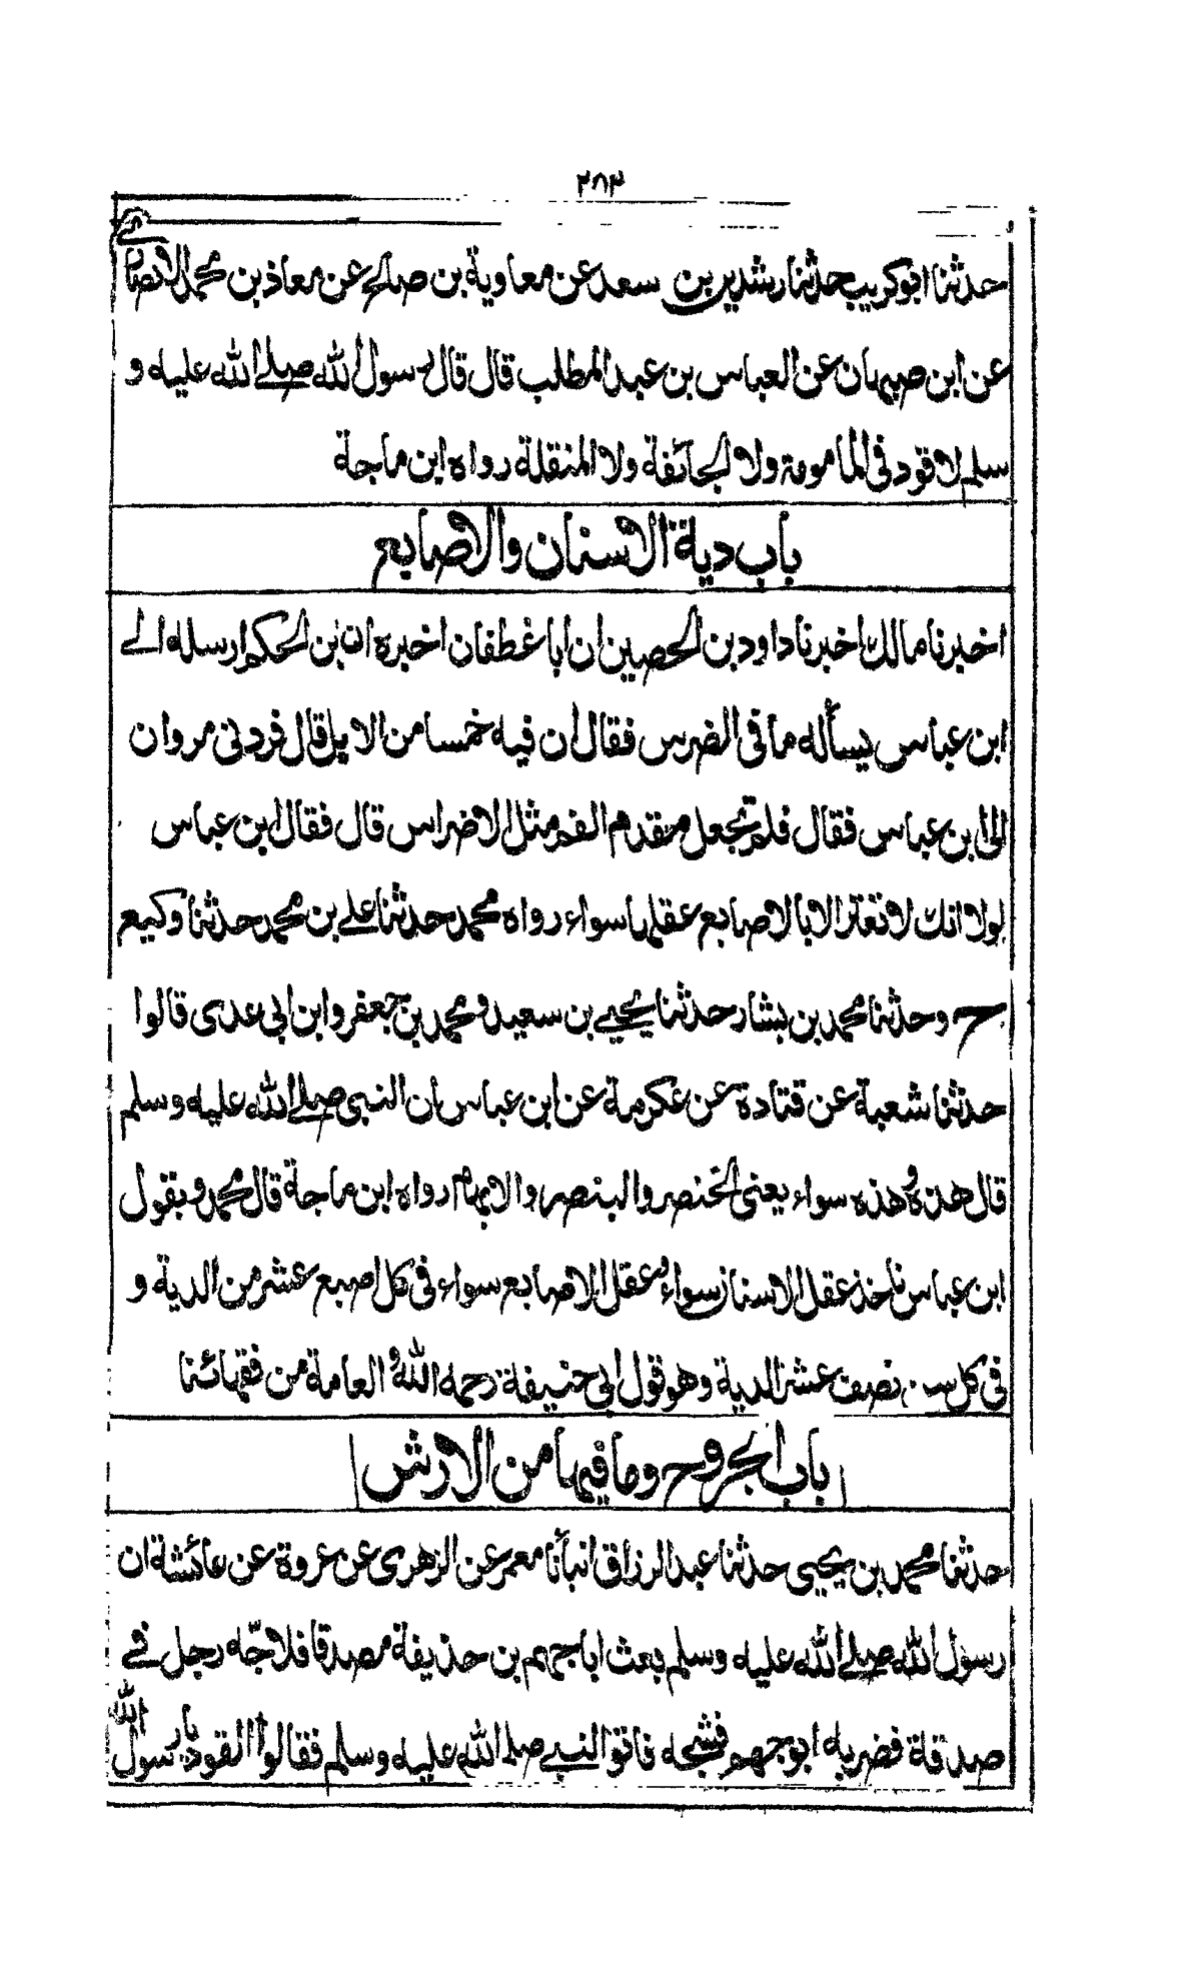 ٢٨٣
حدثنا ابو كريب حدثنا رشدين بن سعد عن معاوية بن صالح عن معاذ بن محمد الانصاري
عن ابن صهبان عن العباس بن عبد المطلب قال قال رسول الله صلے الله عليه و
سلم لا قود فى المامومة ولا الجائفة ولا المنقلة رواه ابن ماجة
باب دية الاسنان والاصابع
اخبرنا مالك اخبرنا داود بن الحصين ان ابا غطفان اخبره ان بن الحكم ارسله الے
ابن عباس يسأله ما فى الضرس فقال ان فيه خمسا من الابل قال فردنى مروان
الى ابن عباس فقال فلم تجعل مقدم الفم مثل الاضراس قال فقال ابن عباس
لولا انك لا تعتبر الا بالاصابع عقلها سواء رواه محمد حدثنا علے بن محمد حدثنا وكيع
ح وحدثنا محمد بن بشار حدثنا يحيے بن سعيد ومحمد بن جعفر وابن ابى عدى قالوا
حدثنا شعبة عن قتادة عن عكرمة عن ابن عباس ان النبى صلے الله عليه وسلم
قال هذه وهذه سواء يعنى الخنصر والبنصر والابهام رواه ابن ماجة قال محمد وبقول
ابن عباس ناخذ عقل الاسنان سواء وعقل الاصابع سواء فى كل اصبع عشر من الدية و
فى كل سن نصف عشر الدية وهو قول ابى حنيفة رحمه الله والعامة من فقهائنا
باب الجروح وما فيها من الارش
حدثنا محمد بن يحيى حدثنا عبد الرزاق انبأنا معمر عن الزهرى عن عروة عن عائشة ان
رسول الله صلے الله عليه وسلم بعث ابا جهم بن حذيفة مصدقا فلاجّه رجل فے
صدقاة فضربه ابو جهم فشجه فاتوا النبے صلے الله عليه وسلم فقالوا القود يا رسول الله